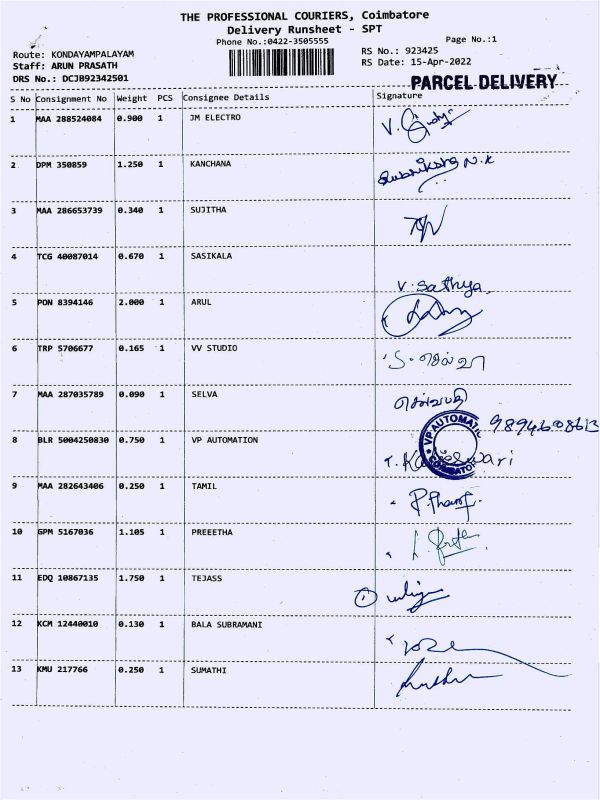 THE PROFESSIONAL COURIERS, Coimbatore
Delivery Runsheet - SPT
Phone No.:0422-3505555
Page No.:1
Route: KONDAYAMPALAYAM
RS No.: 923425
Staff: ARUN PRASATH
RS Date: 15-Apr-2022
DRS No.: DCJB92342501
PARCEL DELIVERY
S No Consignment No Weight PCS Consignee Details Signature
1 MAA 288524084 0.900 1 JM ELECTRO
2 DPM 350859 1.250 1 KANCHANA
3 MAA 286653739 0.340 1 SUJITHA
4 TCG 40087014 0.670 1 SASIKALA V. Sathya.
5 PON 8394146 2.000 1 ARUL
6 TRP 5706677 0.165 1 VV STUDIO
7 MAA 287035789 0.090 1 SELVA
8 BLR 5004250830 0.750 1 VP AUTOMATION
VP AUTOMATION
COIMBATORE
9 MAA 282643406 0.250 1 TAMIL
10 GPM 5167036 1.105 1 PREEETHA
11 EDQ 10867135 1.750 1 TEJASS
12 KCM 12440010 0.130 1 BALA SUBRAMANI
13 KMU 217766 0.250 1 SUMATHI